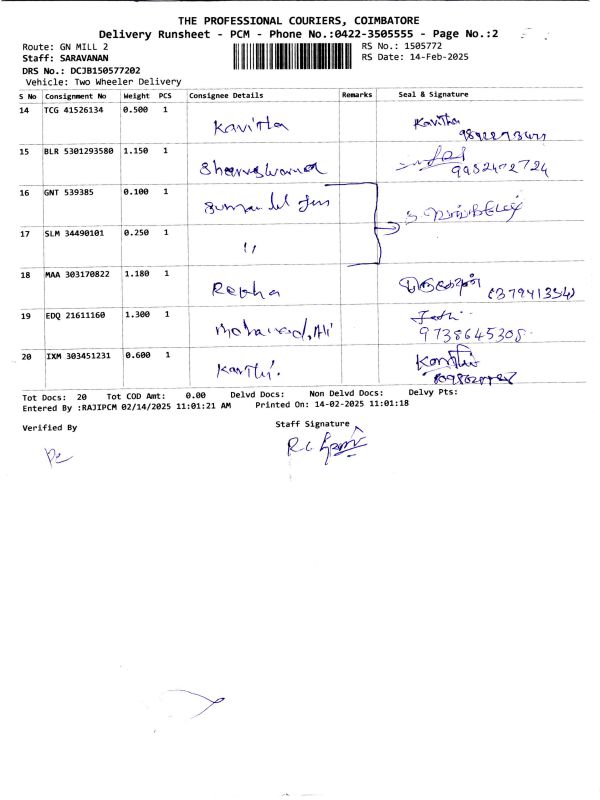 THE PROFESSIONAL COURIERS, COIMBATORE
Delivery Runsheet - PCM - Phone No.:0422-3505555 - Page No.:2
Route: GN MILL 2 RS No.: 1505772
Staff: SARAVANAN RS Date: 14-Feb-2025
DRS No.: DCJB150577202
Vehicle: Two Wheeler Delivery
S No Consignment No Weight PCS Consignee Details Remarks Seal & Signature
14 TCG 41526134 0.500 1 Kavitha Kavitha
15 BLR 5301293580 1.150 1
9952402724
16 GNT 539385 0.100 1
17 SLM 34490101 0.250 1 ''
18 MAA 303170822 1.180 1 Rebha
19 EDQ 21611160 1.300 1 Mohamed, Ali
9738645308
20 IXM 303451231 0.600 1 Kanthi. Kanthi
Tot Docs: 20 Tot COD Amt: 0.00 Delvd Docs: Non Delvd Docs: Delvy Pts:
Entered By :RAJIPCM 02/14/2025 11:01:21 AM Printed On: 14-02-2025 11:01:18
Verified By Staff Signature